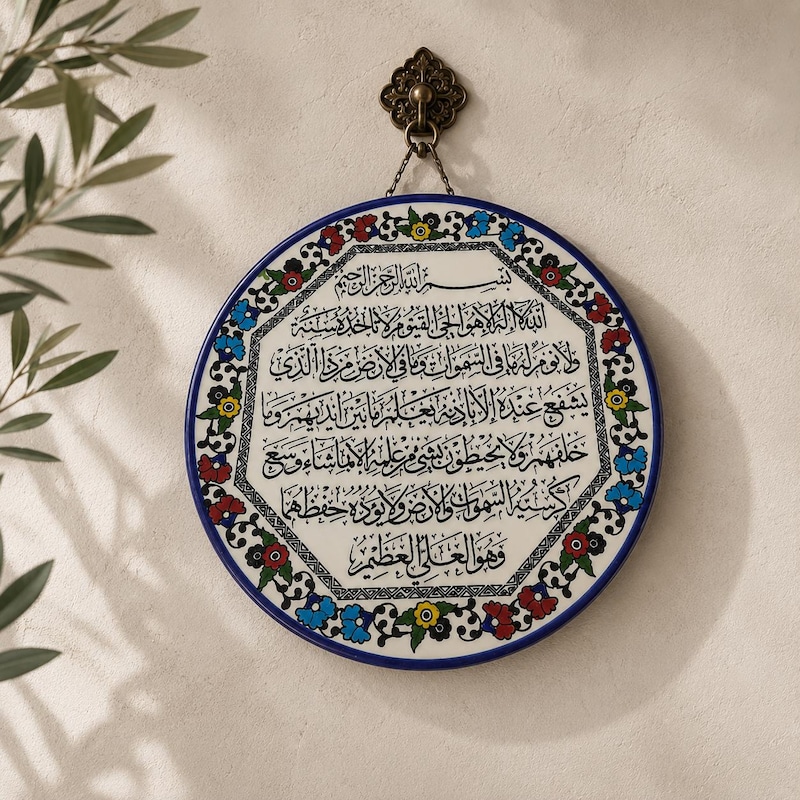 بسم الله الرحمن الرحيم
الله لا اله الا هو الحي القيوم لا تاخذه سنة
ولا نوم له ما في السموات وما في الارض من ذا الذي
يشفع عنده الا باذنه يعلم ما بين ايديهم وما
خلفهم ولا يحيطون بشيء من علمه الا بما شاء وسع
كرسيه السموات والارض ولا يوده حفظهما
وهو العلي العظيم